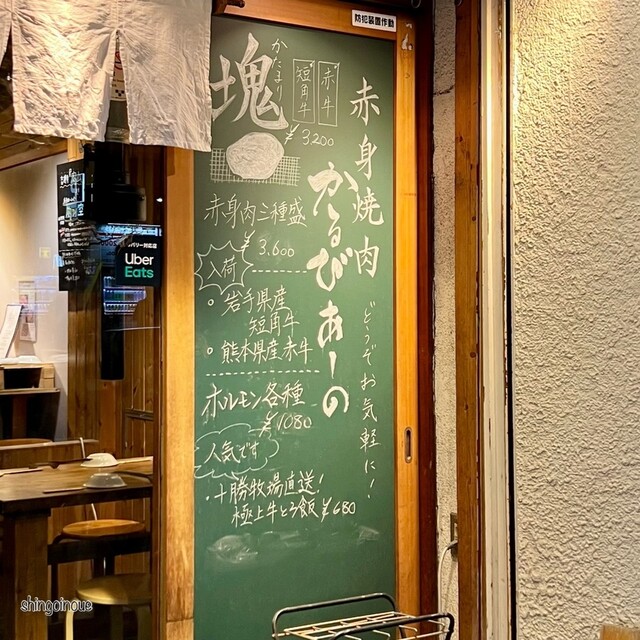 防犯装置作動
赤身焼肉
かるびあーの
どうぞお気軽に！
塊
かたまり
短角牛
赤牛
¥3,200
赤身肉三種盛
¥3,600
入荷
・岩手県産
短角牛
・熊本県産赤牛
ホルモン各種
¥1080
人気です
・十勝牧場直送！
極上牛とろ飯¥680
Uber
Eats
shingoinoue